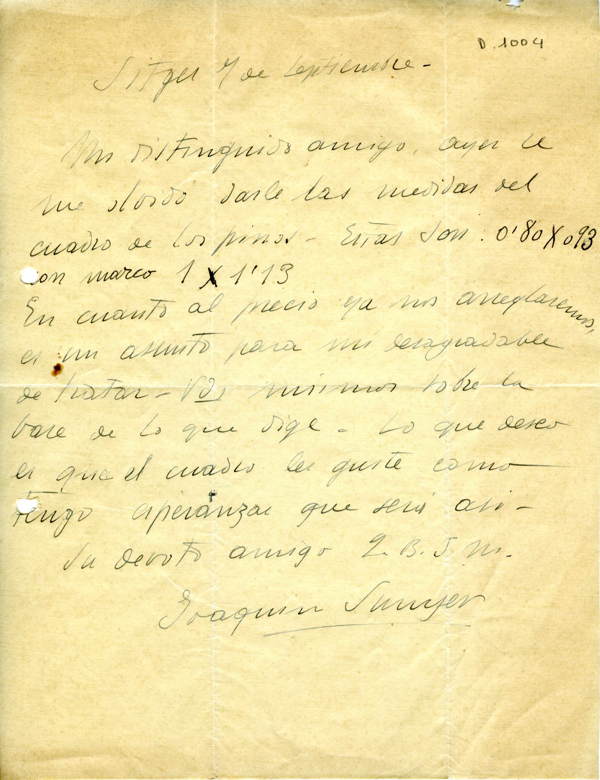 D. 1004
Sitges 7 de Septiembre -
Mi distinguido amigo, ayer se
me olvidó darle las medidas del
cuadro de los pinos - Estas son: 0'80 X 0 93
con marco 1 X 1'13
En cuanto al precio ya nos arreglaremos,
es un asunto para mi desagradable
de tratar - Vds mismos sobre la
base de lo que dige - Lo que deseo
es que el cuadro les guste como
tengo esperanzas que será asi -
Su devoto amigo Q. B. S. M.
Joaquim Sunyer